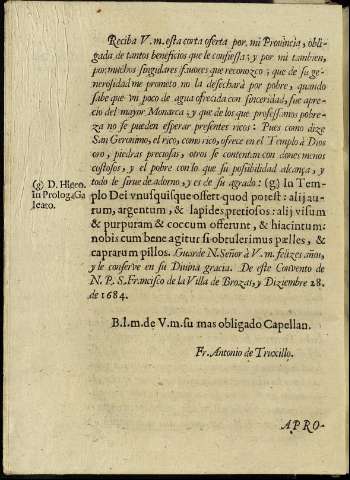 Reciba V.m. esta corta oferta por mi Prouincia, obli-
gada de tantos beneficios que le confiessa; y por mi tambien,
por muchos singulares fauores que reconozco; que de su ge-
nerosidad me prometo no la desechará por pobre, quando
sabe que vn poco de agua ofrecida con sinceridad, fue apre-
cio del mayor Monarca; y que de los que professamos pobre-
za no se pueden esperar presentes ricos: Pues como dize
San Geronimo, el rico, como rico, ofrece en el Templo à Dios
oro, piedras preciosas, otros se contentan con dones menos
costosos, y el pobre con lo que su possibilidad alcança, y
todo le sirue de adorno, y es de su agrado: (g) In Tem-
(g) D. Hieron.
In Prolog. Ga
leato.
plo Dei vnusquisque offert quod potest: alij au-
rum, argentum, & lapides pretiosos: alij visum
& purpuram & coccum offerunt, & hiacintum:
nobiscum bene agitur si obtulerimus pælles, &
caprarum pillos. Guarde N. Señor à V.m. felizes años,
y le conserve en su Diuina gracia. De este Convento de
N. P. S. Francisco de la Villa de Brozas, y Diziembre 28.
de 1684.
B. l. m. de V.m. su mas obligado Capellan.
Fr. Antonio de Truxillo.
APRO-